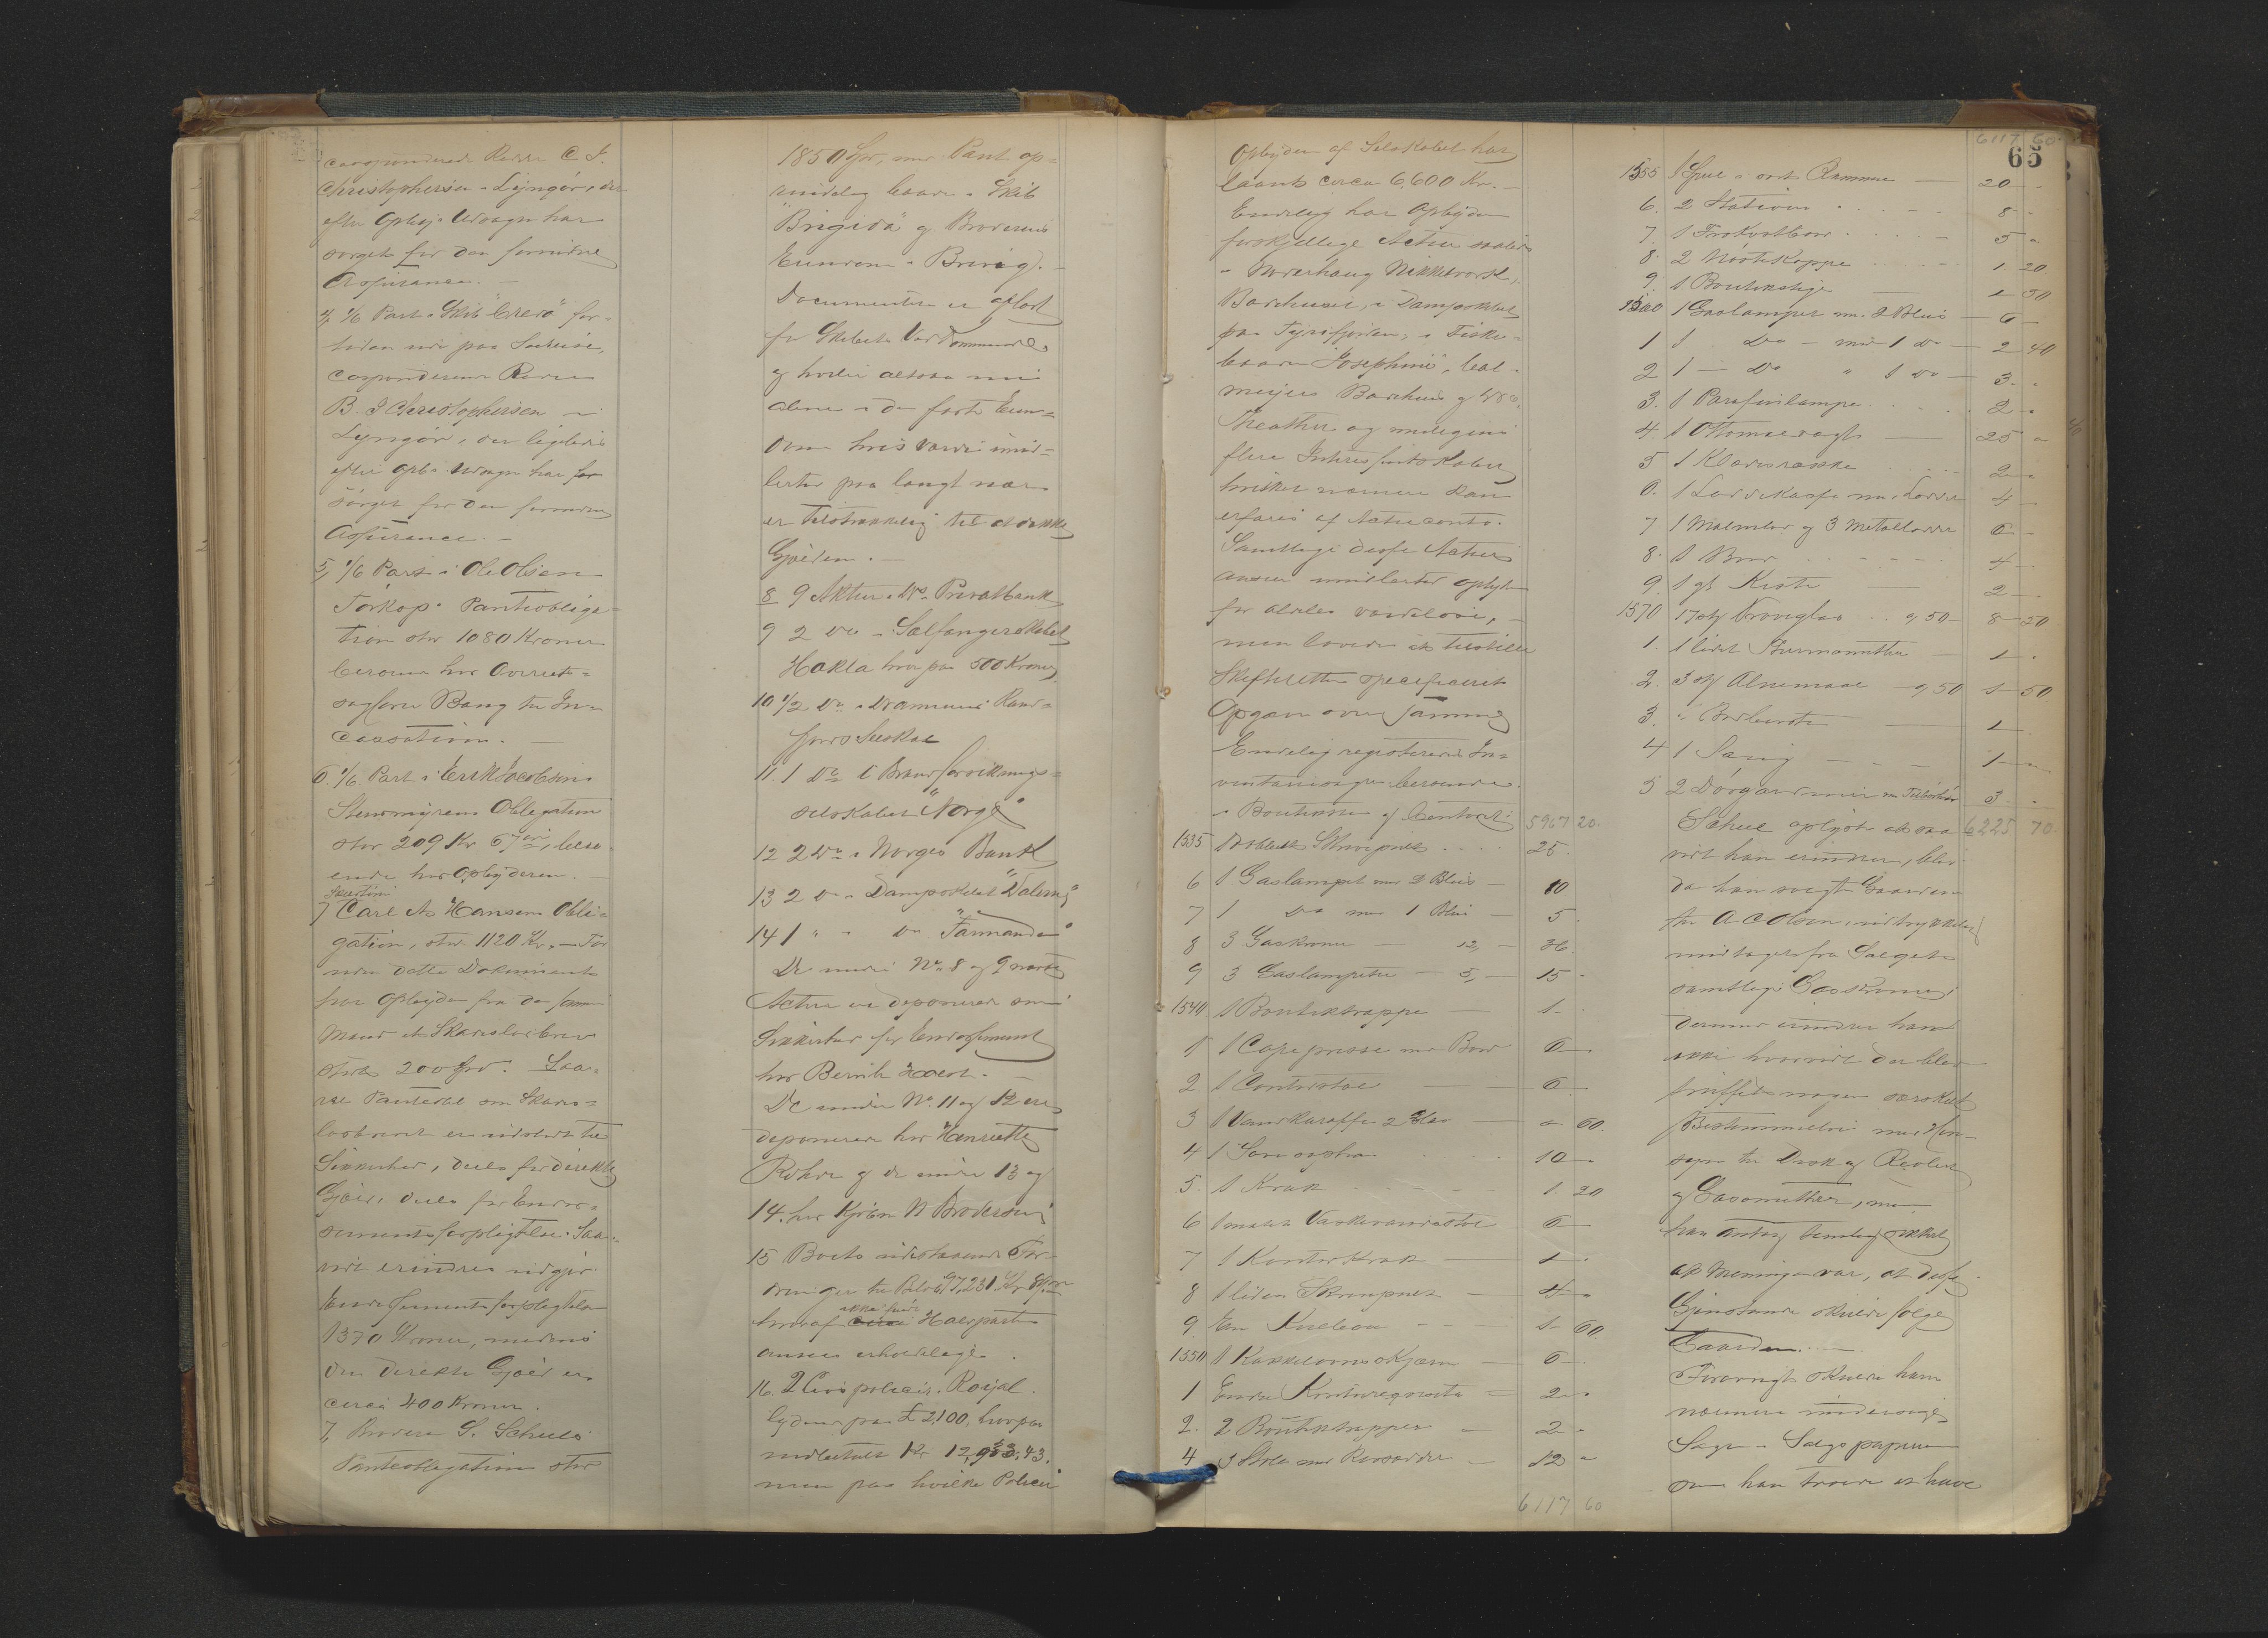 corresponderende Reder C. J.
Christophersen i Lyngör, der
efter Opbyd. Udsagn har
sørget for den fornødne
Assurance. —
4, 1/6 Part i Skib "Credo" for-
tiden ude paa Seereise,
corresponderende Reder
B. J Christophersen i
Lyngör, der ligeledes
efter Opb. Udsagn har
sörget for den fornødne
Assurance. —
5, 1/6 Part i Ole Olsen
Törkop. Panteobliga-
tion stor 1080 Kroner
beroende hos Overrets-
sagfører Bang til In-
cassation. —
6. 1/6 Part i Erik Jacobsen
Stenmyrens Obligation
stor 209 Kr 67 öre, bero-
ende hos Opbyderen. —
7 Carl A. Hansens Obli-
gation, stor 1120 Kr. — For-
uden dette Dokument
har Opbyder fra den samme
Mand et Skadesløsbrev
stort 200 Spd. Saa-
vel Panteobl. som Skades-
løsbrevet er udstedt til
Sikkerhed, deels for direkte
Gjæld, deels for Endos-
sementsforpligtelse. Saa-
vidt erindres udgjør
Endossementsforpligtelsen
1370 Kroner, medens
den direkte Gjæld er
circa 400 Kroner.
7, Broder S. Scheels
Panteobligation stor
1850 Spd, med Pant op-
rindelig baade i Skib
"Brigida" og Broderens
Eiendom i Brevig. —
Documentet er aflæst
for Skibets Vedkommende
og hviler altsaa nu
alene i den faste Eien-
dom hvis Værdi imid-
lertid paa langt nær
er tilstrækkelig til at dække
Gjælden. —
8 9 Aktier i Ds. Privatbank
9 2 Do i Sælfangerskabet
Hekla hver paa 500 Kroner
10 1/2 Do i Drammens Rand-
fjords Selskab
11. 1 Do i Brandforsikrings-
selskabet "Norge"
12 2 Do i Norges Bank
13 2 Do i Dampskibet "Valerin"
14 1 " " Do "Færmanden"
De under No 8 og 9 nævnte
Actier er deponerede som
Sikkerhed for Endossement
hos Bernh. Hoest. —
De under No. 11 og 12 ere
deponerede hos Henriette
Rohde og de under 13 og
14. hos Kjøbm N Brodersen
15 Boets udestaaende For-
dringer til Beløb 97,231 Kr
hvoraf ikke fuldt Halvpart
ansees erholdelige.
16. 2 Livspolicer i Royal
lydende paa £ 2,100, hvorpaa
indbetalt Kr 12,933,43.
men paa hvilke Policer
Opbyder af Selskabet har
laant circa 6,600 Kr. —
Endelig har Opbyder
forskjellige Actier saaledes
i Norderhaug Nikkelværk,
Badehuset, i Dampskibet
paa Tyrifjorden, i Fiske-
baaden "Josephine",
Badehuus
Theather og muligens
flere Interessentskaber
hvilket nærmere kan
erfares af Actieconto.
Samtlige disse Actier
anseer imidlertid Opbyder
for aldeles værdiløse, —
men lovede at tilstille
Skifteretten specificeret
Opgave over samme
Endelig registreredes In-
ventariesager beroende
i Boutiken og Contoret: 5967 20.
1535 1 Dobbelt Skrivepult . . . . 25.
6 1 Gaslampet med 2 Blus — 10
7 1 Do med 1 Blus — 5.
8 3 Gaskroner — 12, — 36.
9 3 Gaslampetter — 5, — 15 -
1540 1 Boutiktrappe — 1. -
1 1 Copiepresse med Bord 6 -
2 1 Contorstol — 6 -
3 1 Vandkaraffe 2 Glas — " 60.
4 1 Sopha . . . . 10 -
5. 1 Krak . . . 1. 20
6 1 malet Vaskevandsstol 6 -
7 1 Kontorkrak — 1 -
8 1 liden Skrivepult — 4 -
9 En Kulboxe - - - 1- 60.
1550 1 Kakkelovnsskjærm — 6 -
1 Endel Kontorrequisita — 2 -
2. 2 Boutiktrapper — 2 -
4 3 Stole med Rørsæder — 12 "
6117 60
6117 60.
65
1555 1 Speil i sort Ramme — 20 -
6. 2 Statuer . . . . 8 -
7. 1 Frokostbord . . . . 5 "
8. 2 Nöttekopper . . . 1. 20
9. 1 Boutikstige — 1 50
1560 1 Gaslampet m. 2 Blus — 6 -
1 1 Do — med 1 Do — 2 40
2 1 — Do " 1 Do — 3. .
3. 1 Parafinlampe . . . 2 -
4. 1 Ottomanvægt — 25 "
5 1 Klædesrække . . . 2 "
6. 1 Loddekasse med Lodder 4 -
7 1 Malmlod og 3 Metallodder 6 -
8. 1 Bord . . . . 4 -
9. 1 gl. Kiste — 2 -
1570 17 stk Prøveglas . . a 50 — 8 50
1. 1 lidet Thermometer — 1 .
2. 3 stk Alnemaal — a 50 1 50
3. " Bordbørste — 1
4 1 Saug — - - — 1 -
5 2 Dörgardiner m. Tilbehør 3. .
Scheel oplyste at saa 6225 70.
vidt han erindrer, blev
da han solgte Gaarden
til A C Olsen, udtrykkelig
undtaget fra Salget
samtlige Gaskroner;
derimod erindrer han
ikke hvorvidt der blev
truffet nogen særskilt
Bestemmelse med Hen-
syn til Disk og Reoler
og Gasometer, men
han antog temmelig sikkert
at Meningen var, at disse
Gjenstande skulde følge
Gaarden. —
Forøvrigt skulde han
nærmere undersøge
Sagen i Salgspapirerne
som han troede at have